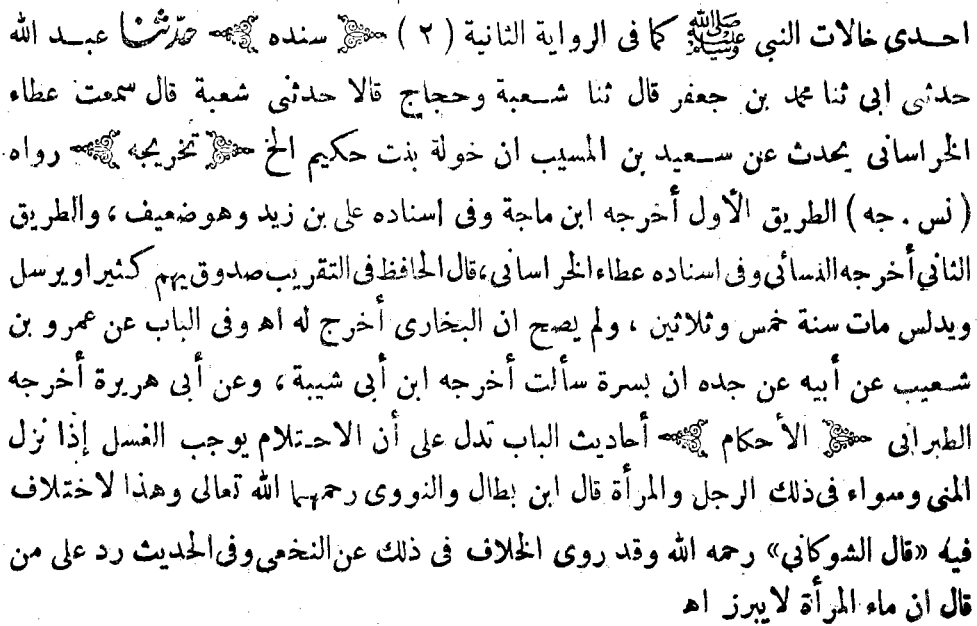 احدى خالات النبي ﷺ كما فى الرواية الثانية (٢) ﴿ سنده ﴾ حدّثنا عبد الله
حدثنى ابى ثنا محمد بن جعفر قال ثنا شعبة وحجاج قالا حدثنى شعبة قال سمعت عطاء
الخراسانى يحدث عن سعيد بن المسيب ان خولة بنت حكيم الخ ﴿ تخريجه ﴾ رواه
(نس . جه) الطريق الأول أخرجه ابن ماجة وفى اسناده على بن زيد وهو ضعيف ، والطريق
الثاني أخرجه النسائى وفى اسناده عطاء الخراسانى ، قال الحافظ فى التقريب صدوق يهم كثيرا ويرسل
ويدلس مات سنة خمس وثلاثين ، ولم يصح ان البخارى أخرج له اه وفى الباب عن عمرو بن
شعيب عن أبيه عن جده ان بسرة سألت أخرجه ابن أبى شيبة ، وعن أبى هريرة أخرجه
الطبرانى ﴿ الأحكام ﴾ أحاديث الباب تدل على أن الاحتلام يوجب الغسل إذا نزل
المنى وسواء فى ذلك الرجل والمرأة قال ابن بطال والنووى رحمهما الله تعالى وهذا لاختلاف
فيه «قال الشوكاني» رحمه الله وقد روى الخلاف فى ذلك عن النخعى وفى الحديث رد على من
قال ان ماء المرأة لا يبرز اه